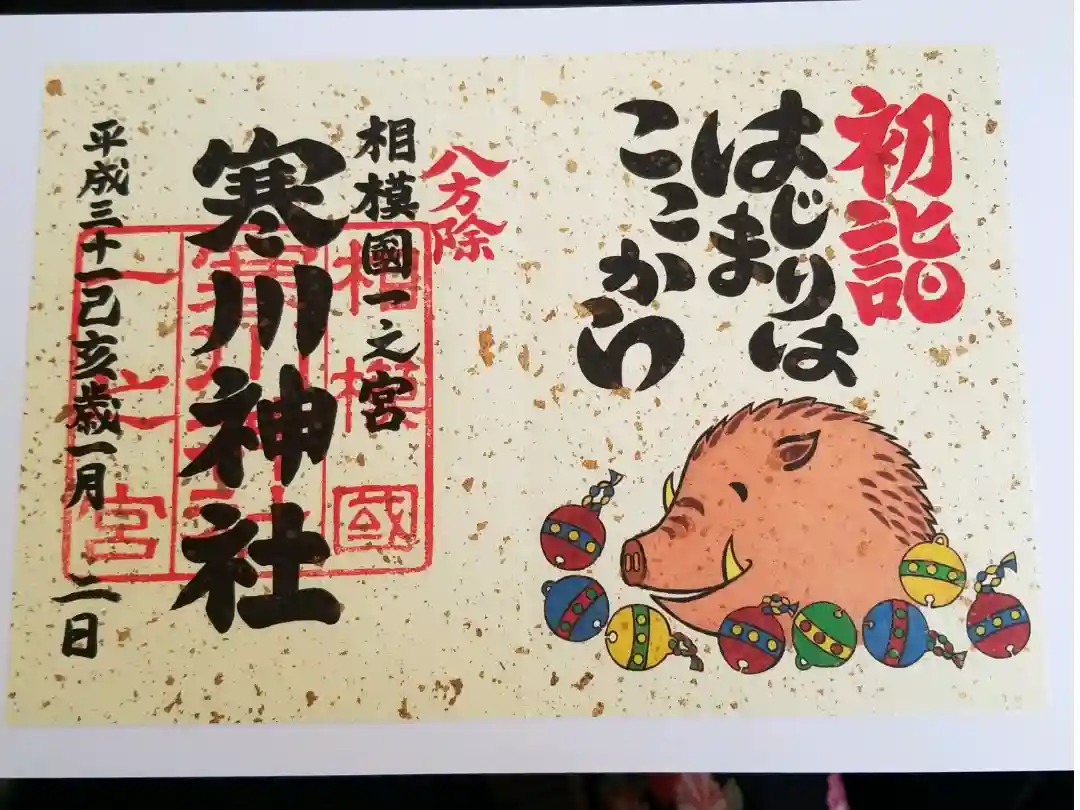 初詣
はじまりは
はじまりは
ここから
八方除
相模國一之宮
寒川神社
平成三十一己亥歳一月 二日
相模國
寒川神社
一之宮